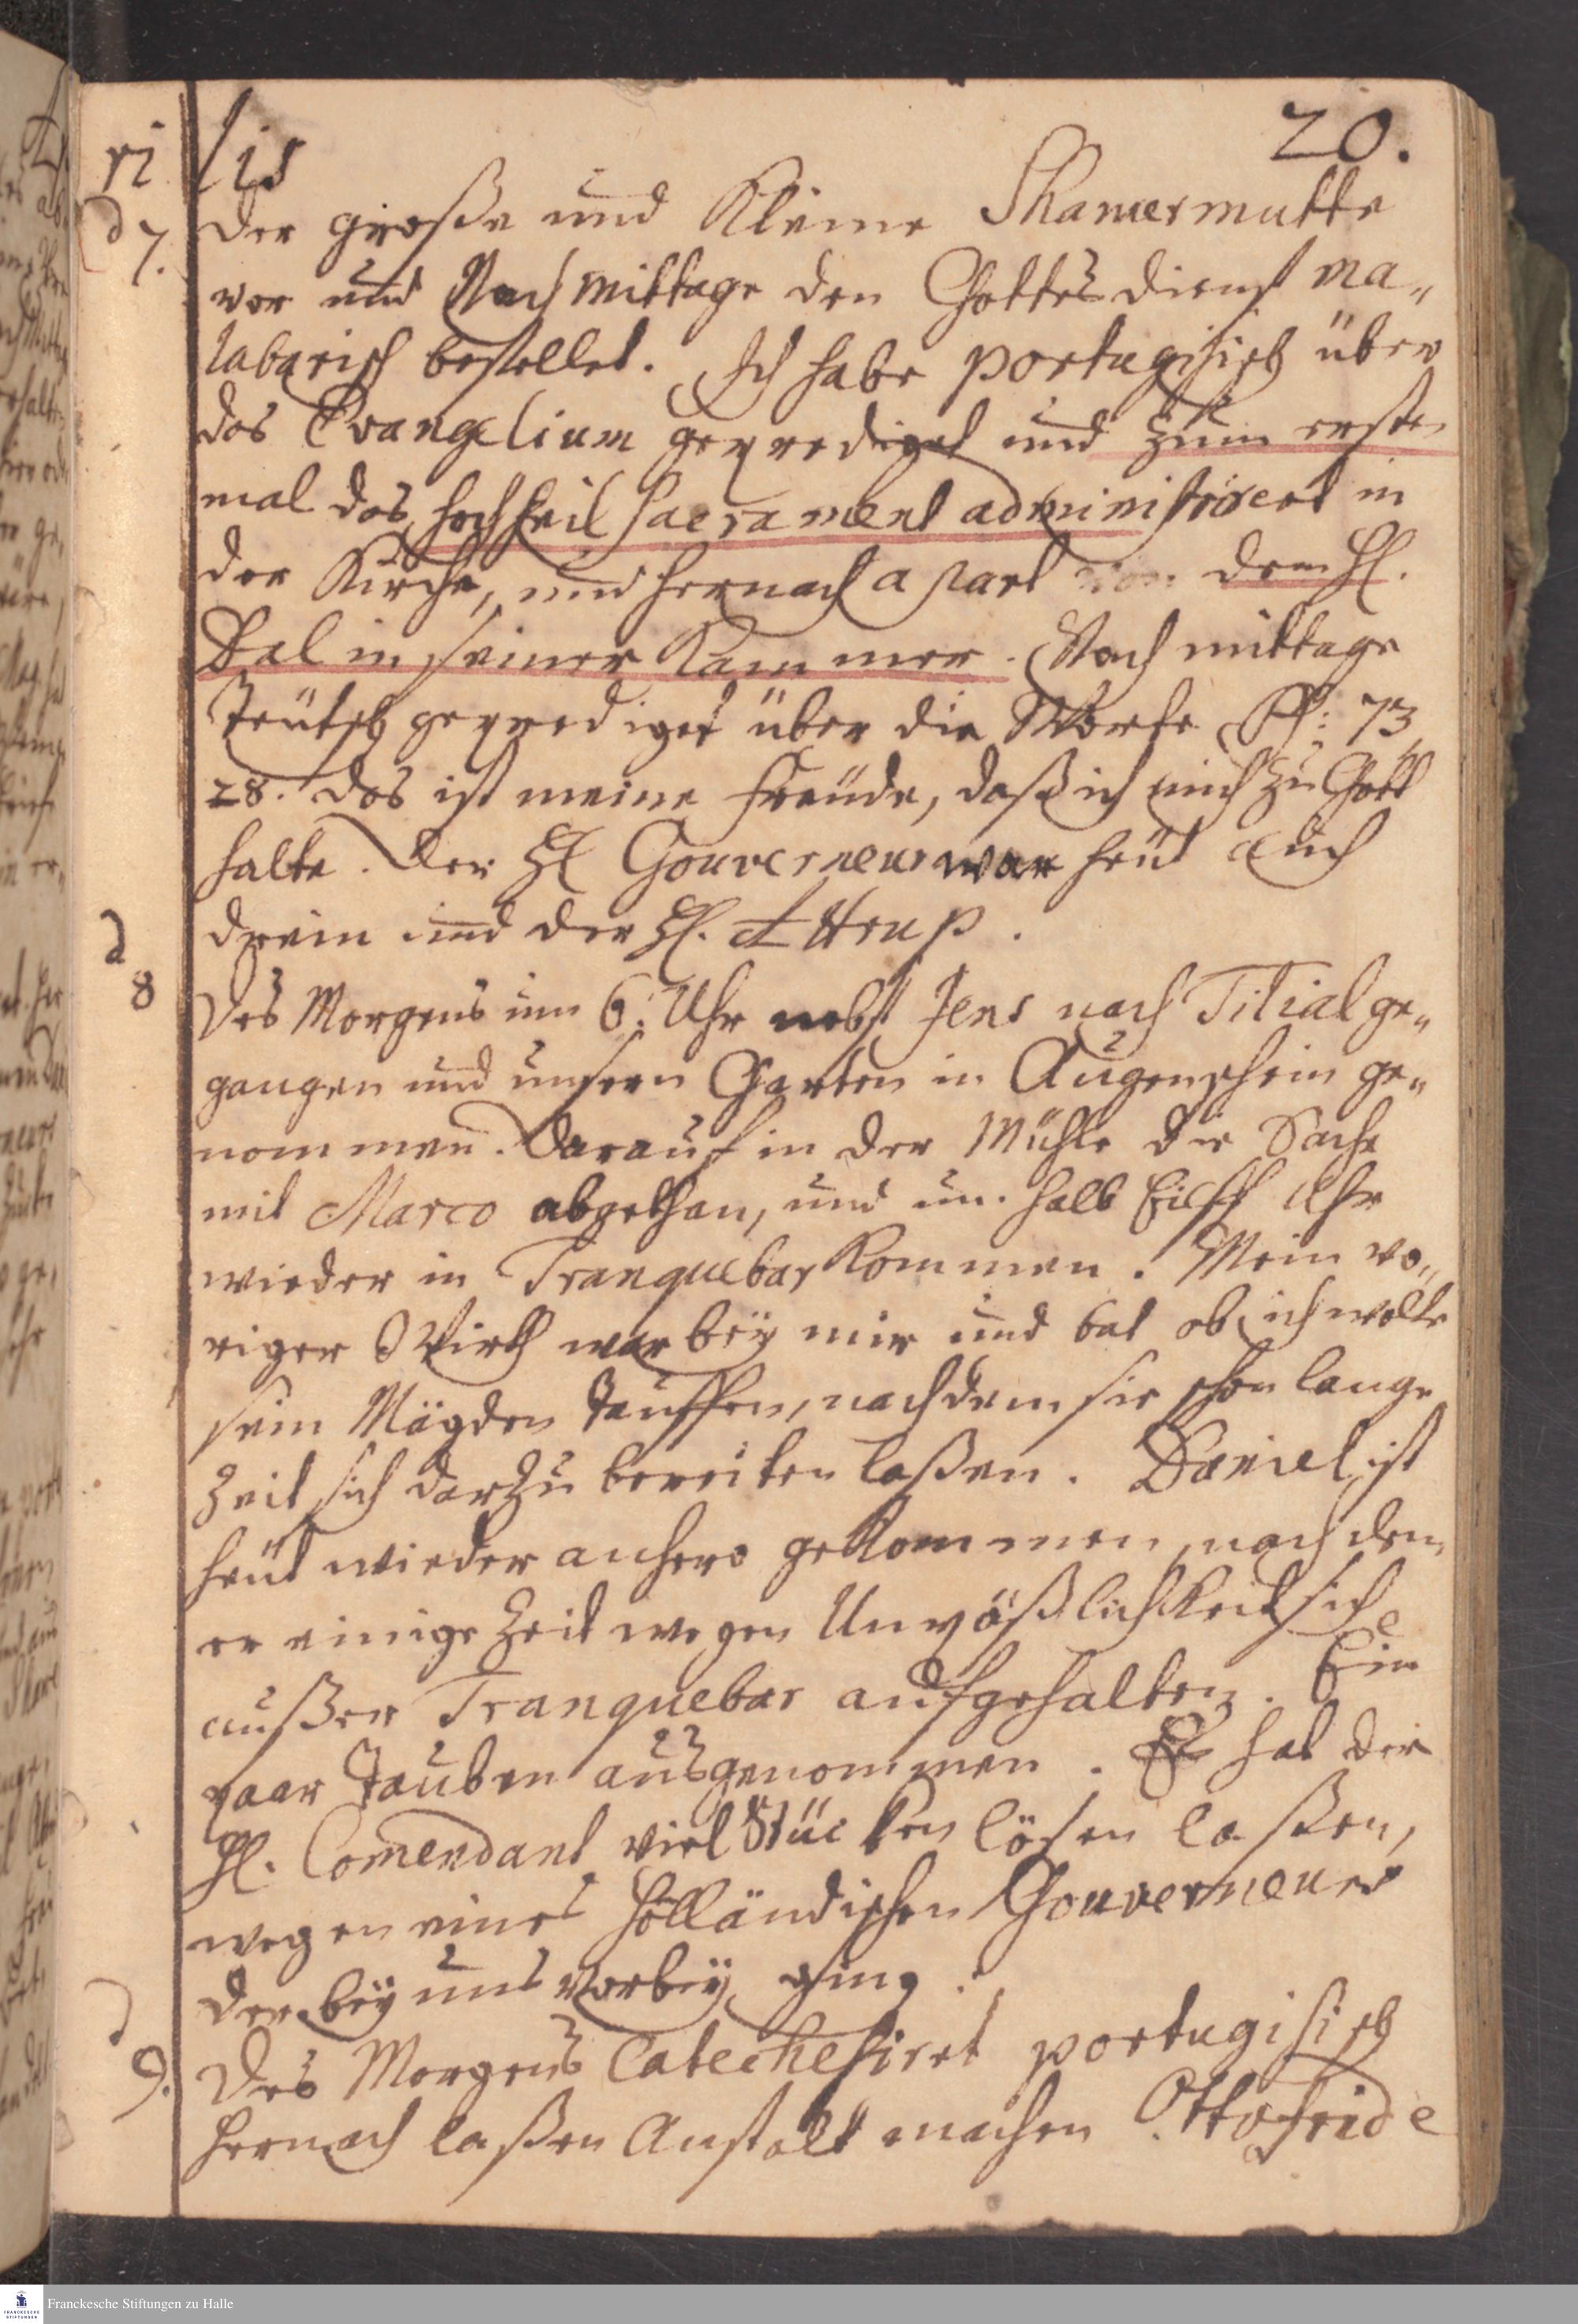 20.
ri lis
d 7. Der große und Kleine Shamermutte
vor und Nachmittage den Gottesdienst ma„
labarisch bestellet. Ich habe portugisisch über
das Evangelium geprediget und zum ersten
mal das hochheil Sacrament administriret in
der Kirche, und hernach a part dem H.
Dal in seiner Kammer. Nachmittage
Teütsch geprediget über die Worte Ps: 73,
28. Das ist meine Freüde, daß ich mich zu Gott
halte. Der H Gouverneur war heüt auch
drein und der H. Attrup.
d 8 Des Morgens um 6. Uhr nebst Jens nach Titial ge„
gangen und unsern Garten in Augenschein ge„
nommen. Darauf in der Mühle die Sache
mit Marco abgethan, und um halb Eilff Uhr
wieder in Tranquebar Kommen. Mein vo„
riger Wirth war beÿ mir und bat ob ich wolte
sein Mägden tauffen, nachdem sie schon lange
Zeit sich darzu bereiten laßen. Daniel ist
heüt wieder anhero gekommen, nachdem
er einige Zeit wegen Unpäßlichkeit sich
außer Tranquebar aufgehalten. Ein
paar Tauben ausgenommen. Es hat der
H. Comendant viel Stücken lösen laßen,
wegen eines Holländischen Gouverneurs
der beÿ uns vorbeÿ ging.
d 9. Des Morgens Catechesiret portugisisch
hernach laßen Anstalt machen Ottofride
Franckesche Stiftungen zu Halle